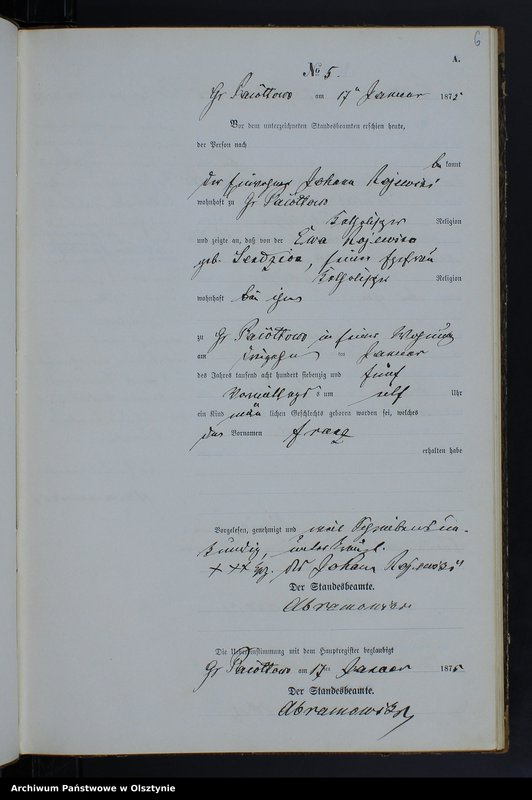 6
A.
No 5.
Gr Pacöltowo am 17ten Januar 1875
Vor dem unterzeichneten Standesbeamten erschien heute,
der Person nach
be kannt
der Einwohner Johann
wohnhaft zu Gr Pacöltowo
Katholischer Religion
und zeigte an, daß von der Ewa
geb. seiner Ehefrau
Katholischer Religion
wohnhaft bei ihm
zu Gr Pacöltowo in seiner Wohnung
am ten Januar
des Jahres tausend acht hundert siebenzig und fünf
Vormittags um elf Uhr
ein Kind männ lichen Geschlechts geboren worden sei, welches
den Vornamen Franz
erhalten habe
Vorgelesen, genehmigt und weil Schreibensun-
kundig, unterkreuzt.
+ ++ Johann
Der Standesbeamte.
Abramowski
Die Uebereinstimmung mit dem Hauptregister beglaubigt
Gr Pacöltowo am 17ten Januar 1875
Der Standesbeamte.
Abramowski
Archiwum Państwowe w Olsztynie